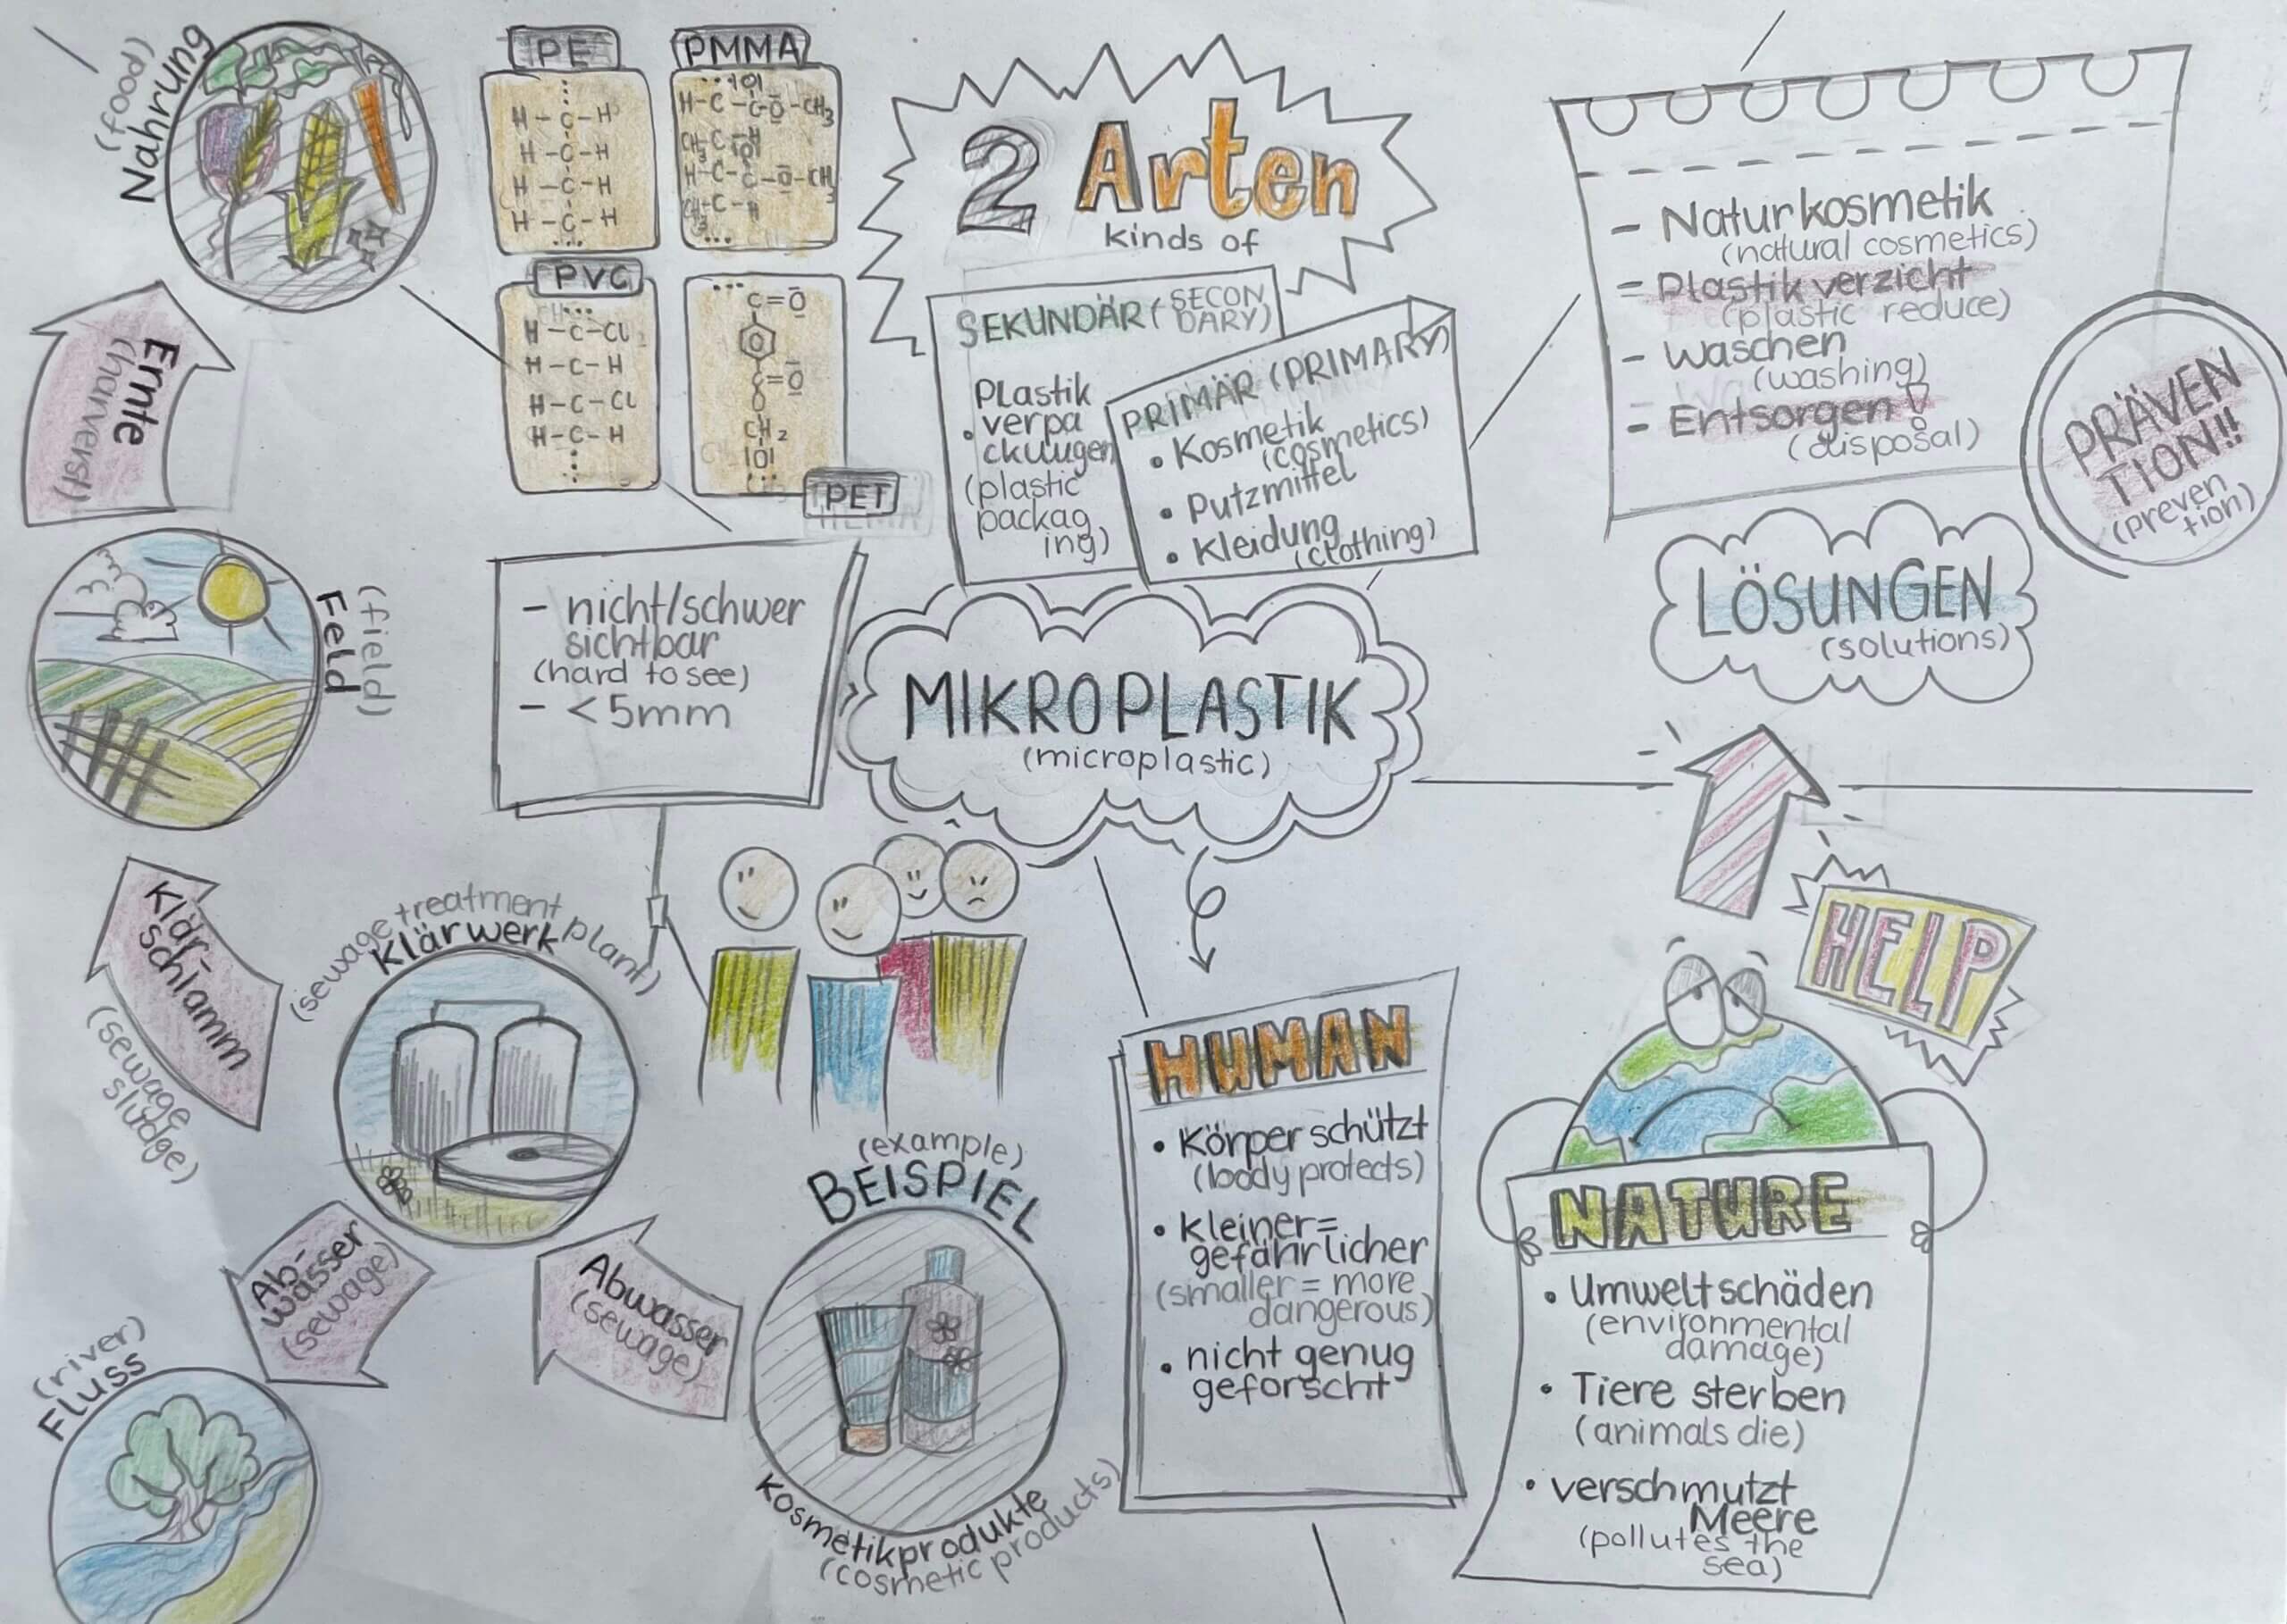 (food)
Nahrung
PE
H-C-H
H-C-H
H-C-H
H-C-H
PMMA
PVC
H-C-Cl
H-C-H
H-C-Cl
H-C-H
PET
2 Arten
kinds of
SEKUNDÄR (SECON
DARY)
Plastik
• verpa
ckuugen
(plastic
packag
ing)
PRIMÄR (PRIMARY)
• Kosmetik
(cosmetics)
• Putzmittel
• Kleidung
(clothing)
- Naturkosmetik
(natural cosmetics)
- Plastikverzicht
(plastic reduce)
- waschen
(washing)
- Entsorgen
(disposal)
PRÄVEN
TION!!
(preven
tion)
LÖSUNGEN
(solutions)
Ernte
(harverst)
(field)
Feld
- nicht/schwer
sichtbar
(hard to see)
- <5mm
MIKROPLASTIK
(microplastic)
HELP
Klär-
schlamm
(sewage
sludge)
(sewage treatment plant)
Klärwerk
Ab-
wasser
(sewage)
Abwasser
(sewage)
(river)
Fluss
(example)
BEISPIEL
Kosmetikprodukte
(cosmetic products)
HUMAN
• Körper schützt
(body protects)
• kleiner=
gefährlicher
(smaller = more
dangerous)
• nicht genug
geforscht
NATURE
• Umweltschäden
(environmental
damage)
• Tiere sterben
(animals die)
• verschmutzt
Meere
(pollutes the
sea)